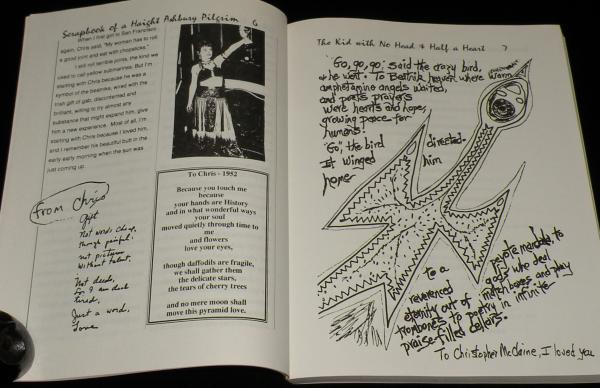 Scrapbook of a Haight Ashbury Pilgrim 6
When I first got to San Francisco
again, Chris said, "My woman has to roll
a good joint and eat with chopsticks."
I still roll terrible joints, the kind we
used to call yellow submarines. But I'm
starting with Chris because he was a
symbol of the beatniks, wired with the
Irish gift of gab, discontented and
brilliant, willing to try almost any
substance that might expand him, give
him a new experience. Most of all, I'm
starting with Chris because I loved him,
and I remember his beautiful butt in the
early early morning when the sun was
just coming up.
from Chris
Gift
Not words cheap,
though painful.
no pictures
Without talent.
Not deeds,
for I am dead
tired,
Just a word,
Love
To Chris - 1952
Because you touch me
because
your hands are History
and in what wonderful ways
your soul
moved quietly through time to
me
and flowers
love your eyes,
though daffodils are fragile,
we shall gather them
the delicate stars,
the tears of cherry trees
and no mere moon shall
move this pyramid love.
The Kid with No Head & Half a Heart 7
"Go, go, go," said the crazy bird,
& he went. To Beatnik heaven where warm
amphetamine angels waited,
and poets prayers
were hearts and hope,
growing peace for
humans!
"Go", the bird directed.
It winged him
home
to a peyote mandala, to
reverenced gods who deal
eternity out of matchboxes and play
trombones to poetry in infinite
praise-filled cellars.
To Christopher McClaine, I loved you